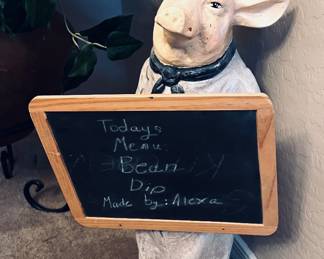 Todays
Menu
Bean
Dip
Made by: Alexa